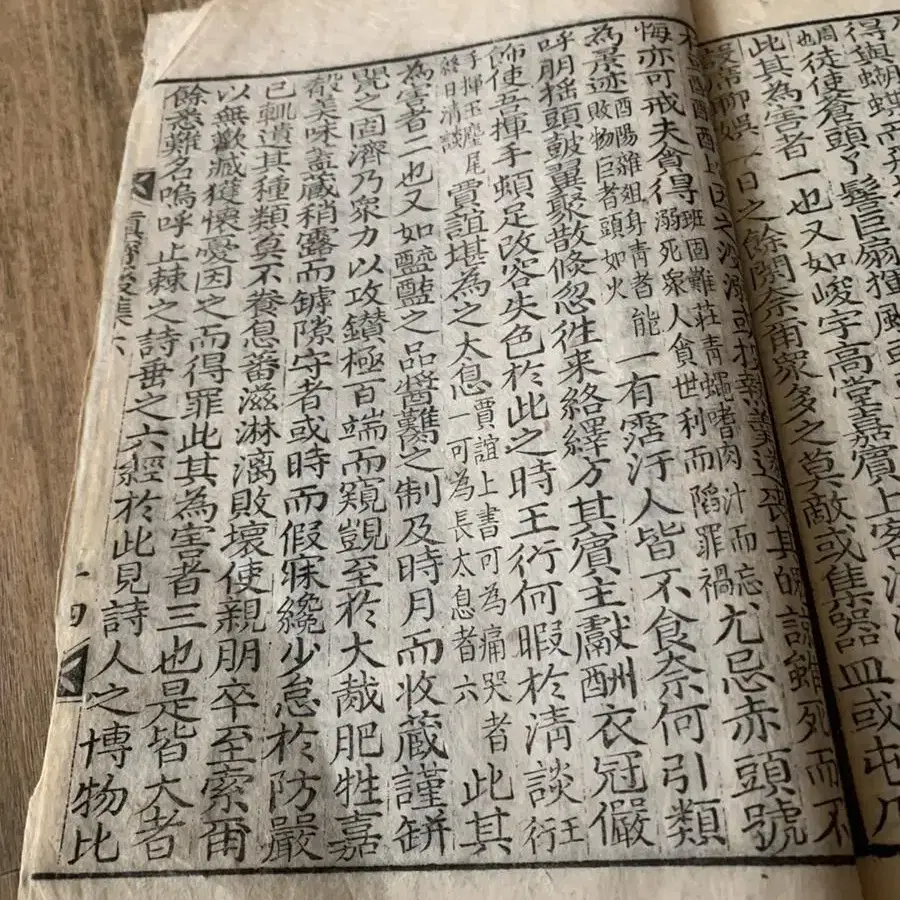 得與蝴蝶高飛
周也徒使蒼頭丫髻巨扇揮颺或
此其為害者一也又如峻宇高堂嘉賓上客沽
一日之餘閑奈爾衆多之莫敵或集器皿或屯几
因之沉溺或投熱羹遂喪其魄諒雖死而不
悔亦可戒夫貪得班固難莊青蠅嗜肉汁而忘溺死衆人貪世利而陷罪禍尤忌赤頭號
為景迹酉陽雜俎身青者能敗物巨者頭如火一有霑汙人皆不食奈何引類
呼朋搖頭鼓翼聚散倏忽徃来絡繹方其賓主獻酬衣冠儼
飾使吾揮手頓足改容失色於此之時王衍何暇於清談王衍
手揮玉麈尾終日清談賈誼堪為之太息賈誼上書可為痛哭者一可為長太息者六此其
為害者二也又如醯醢之品醬臡之制及時月而收藏謹缾
甖之固濟乃衆力以攻鑽極百端而窺覬至於大胾肥牲嘉
殽美味蓋藏稍露而罅隙守者或時而假寐纔少怠於防嚴
已輒遺其種類莫不養息蕃滋淋漓敗壞使親朋卒至索爾
以無歡臧獲懷憂因之而得罪此其為害者三也是皆大者
餘悉難名嗚呼止棘之詩垂之六經於此見詩人之博物比
真寶後集六 十四